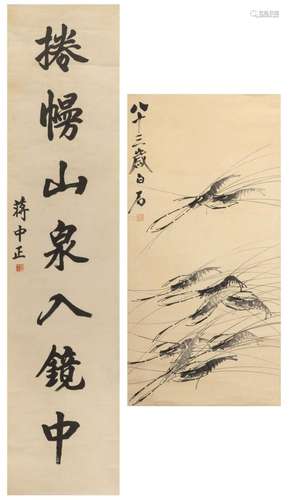 捲幔山泉入鏡中
蔣中正
八十三歲白石